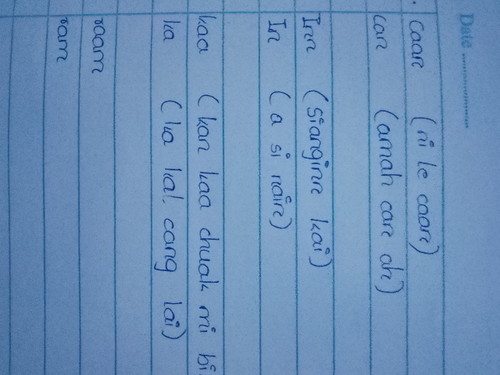 Date
caan (ni le caan)
can (amah can ah)
Inn (sianginn kai)
In (a si nain)
kaa (kan kaa chuak mi bi
ka (ka kal cang lai)
raam
ram